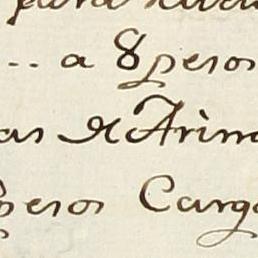 para
... a 8 pesos
as de Arina
pesos Carga